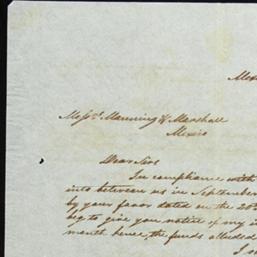 Mess.rs Manning & Marshall
Mexico
Dear Sirs
In compliance with
into between us in September
by your favor dated on the 20th
beg to give you notice of my i
month hence, the funds alluded